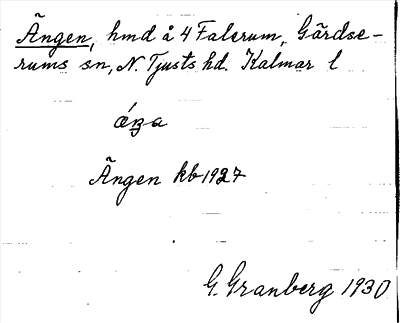 Ängen, hmd å 4 Falerum, Gärdse-
rums sn, N. Tjusts hd. Kalmar l
Ängen kb 1927
G. Granberg 1930